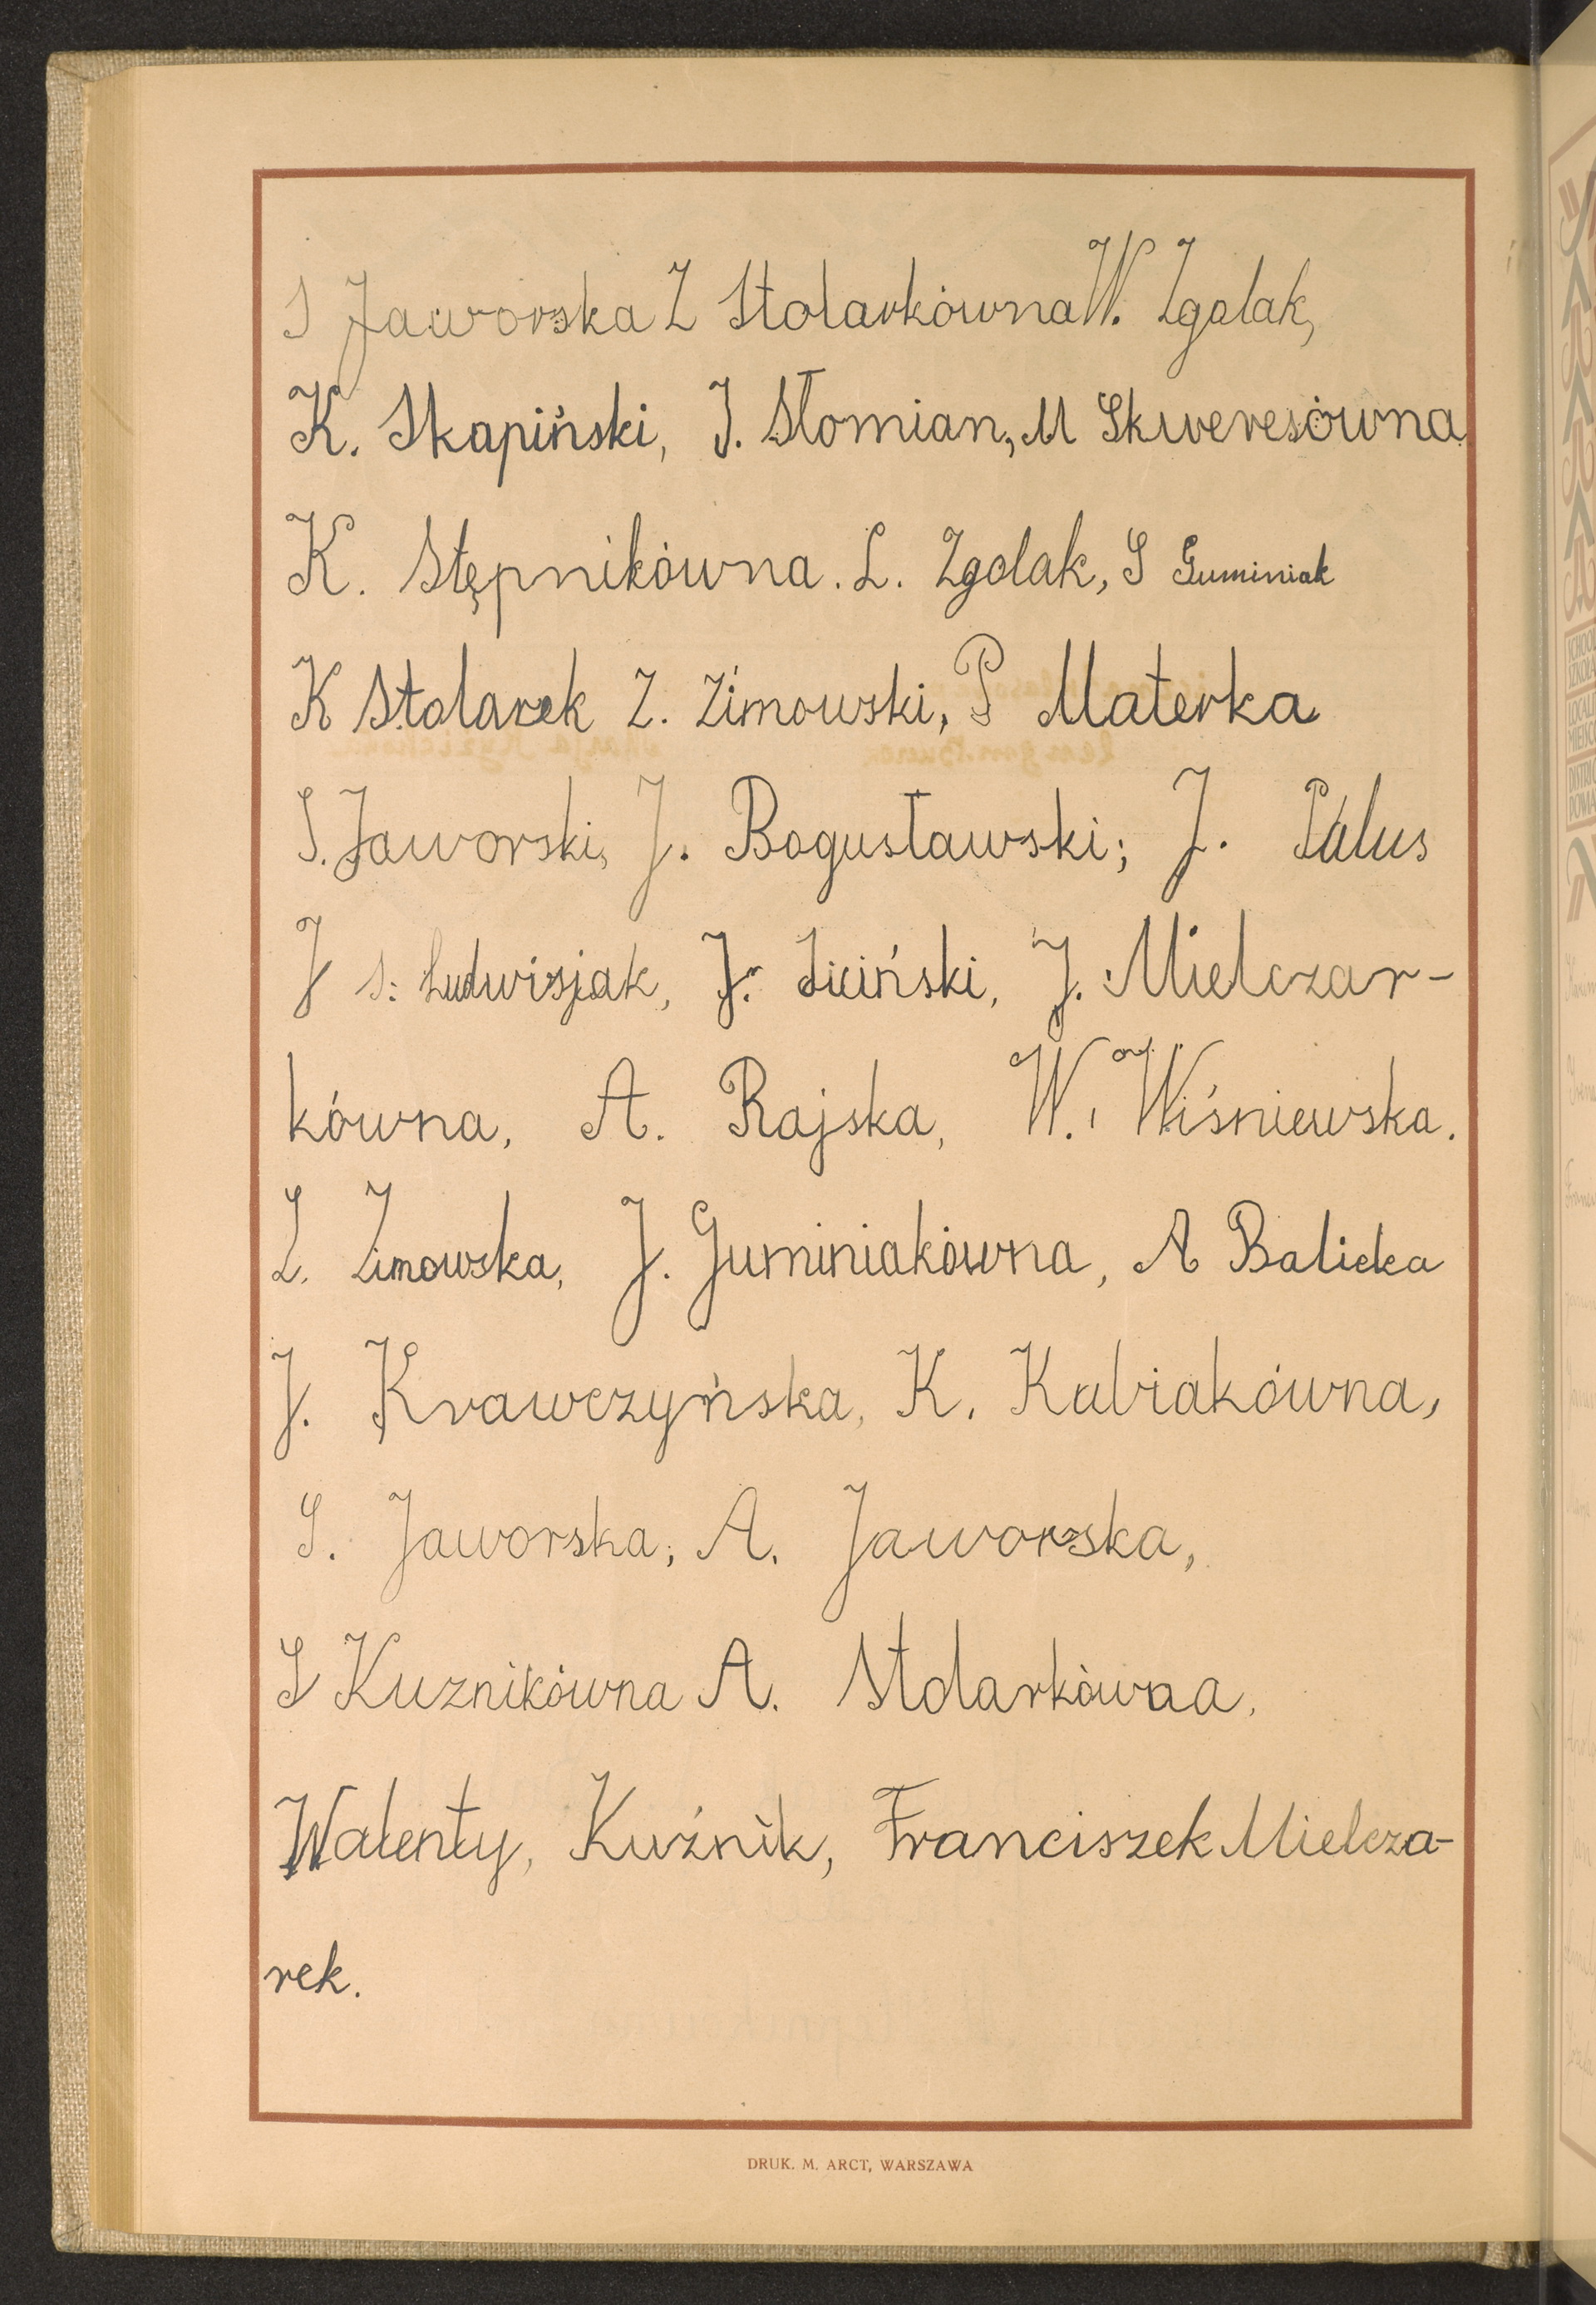 S Jaworska Z Stolarkówna W. Zgolak,
K. Skapiński, J. Słomian, M Skweresówna
K. Stępnikówna. L. Zgolak, S Guminiak
K Stolarek Z. Zimowski, P Materka
S. Jaworski, J. Bogusławski; J. Palus
J S: Ludwisjak, J. Siciński, J. Mielczar-
kówna, A. Rajska, W. Wiśniewska.
Z. Zimowska, J. Guminiakówna, A Balicka
J. Krawczyńska, K. Kubiakówna,
S. Jaworska, A. Jaworska,
S Kuznikówna A. Stolarkówna.
Walenty, Kuźnik, Franciszek Mielcza-
rek.
DRUK. M. ARCT, WARSZAWA